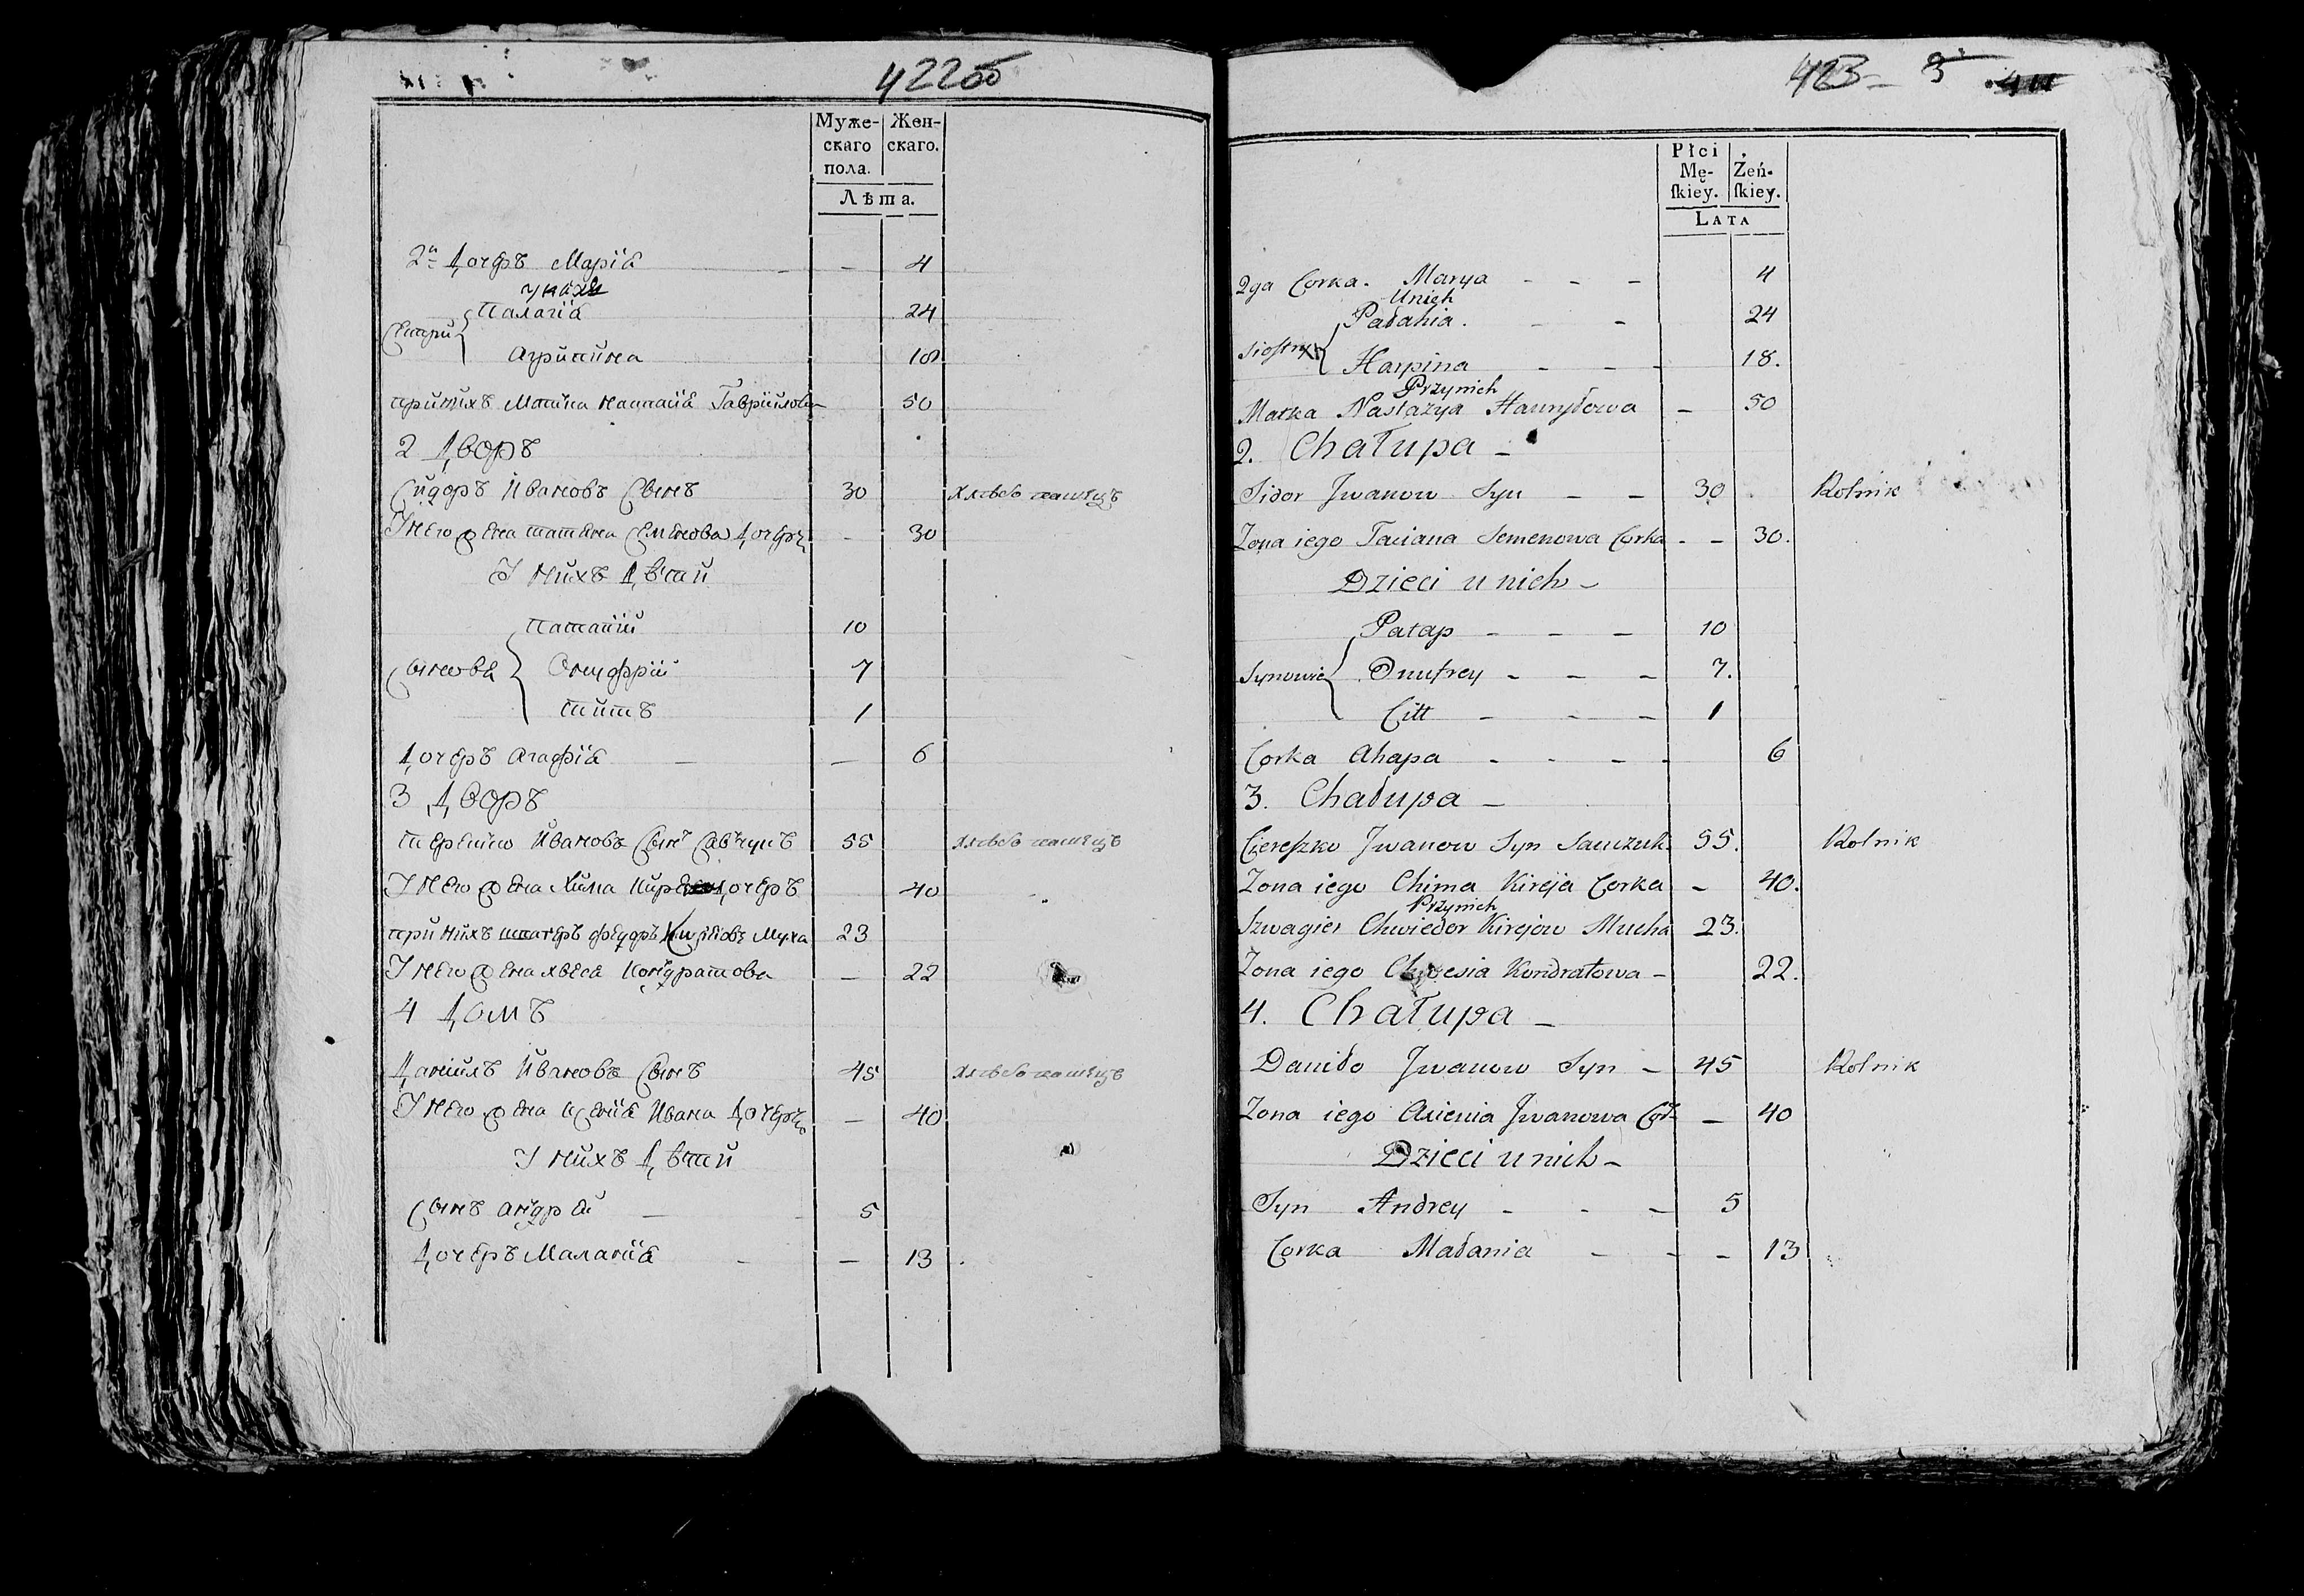 422об
Муже-
скаго
пола.
Жен-
скаго.
Лѣта.
2я Дочеръ Марія — 4
у нихъ
Палагія 24
Сестри
Агрипина 18
при нихъ Матка Настасія Гавриилова 50
2 Дворъ
Сидоръ Ивановъ Сынъ 30 хлѣбопашецъ
У него жена Татьяна Семенова Дочеръ - 30
У нихъ Дѣти
Патапій 10
Сыновѣ Онуфрій 7
Титъ 1
Дочеръ Агафія — 6
3 Дворъ
Терешко Ивановъ Сынъ Савчукъ 55 хлѣбопашецъ
У него жена Хима Дочеръ 40
при нихъ Федоръ Муха 23
У него жена Хвеся Кондратова — 22
4 Домъ
Данилъ Ивановъ Сынъ 45 хлѣбопашецъ
У него жена Ксенія Ивана Дочеръ — 40
У нихъ Дѣти
Сынъ Андрей — 5
Дочеръ Маланія — 13
423 3
Płci
Mę-
ſkiey.
Żeń-
ſkiey.
LATA
2ga Corka. Marya - - - 4
Unich
Pałahia. - - 24
Siostry
Harpina - - - 18.
Przynich
Matka Nastazya Hawryłowa - 50
2. Chałupa -
Sidor Jwanow Syn - - 30 Rolnik
Zona iego Taciana Semenowa Corka - - 30.
Dzieci u nich -
Patap - - - 10
Synowie Onufrey - - - 7.
Citt - - - 1
Corka Ahapa - - - - 6
3. Chałupa -
Ciereszko Jwanow Syn Sawczuk 55. Rolnik
Zona iego Chima Kireja Corka - 40.
Przynich
Szwagier Chwiedor Kirejow Mucha 23.
Zona iego Chwesia Kondratowa - 22.
4. Chałupa -
Daniło Jwanow Syn - 45 Rolnik
Zona iego Axienia Jwanowa Cor - 40
Dzieci u nich -
Syn Andrey - - - 5
Corka Małania - - - 13